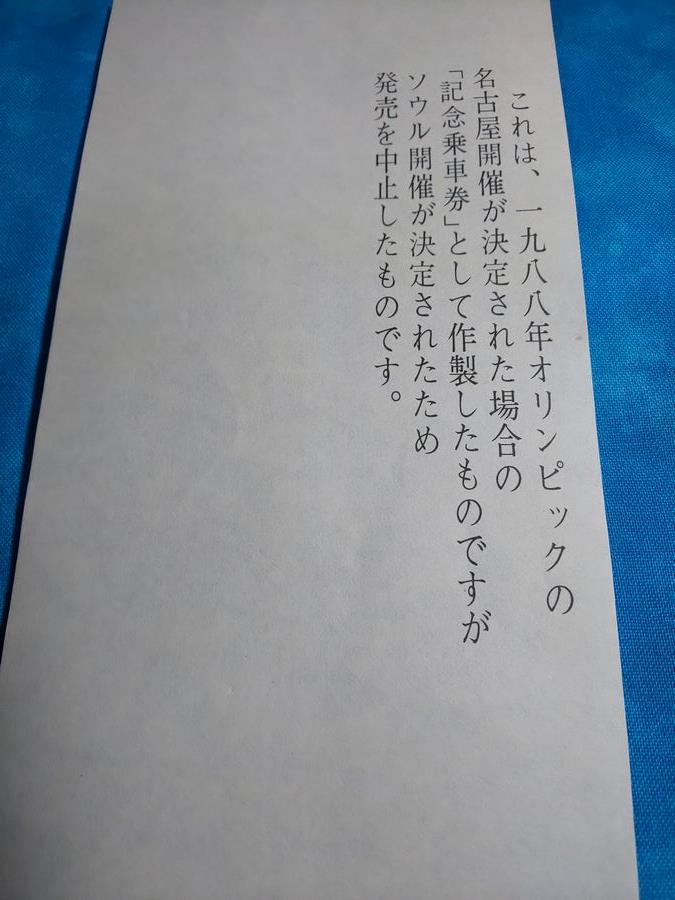 これは、一九八八年オリンピックの
名古屋開催が決定された場合の
「記念乗車券」として作製したものですが
ソウル開催が決定されたため
発売を中止したものです。